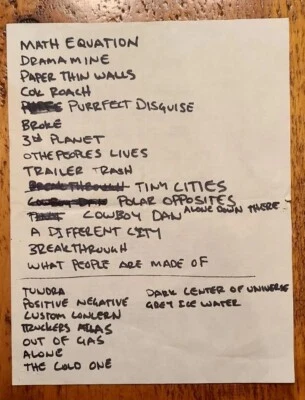 MATH EQUATION
DRAMAMINE
PAPER THIN WALLS
COK ROACH
PURRFECT DISGUISE
BROKE
3rd PLANET
OTHEPEOPLES LIVES
TRAILER TRASH
BREAKTHROUGH TINY CITIES
COWBOY DAN POLAR OPPOSITES
COWBOY DAN ALONE DOWN THERE
A DIFFERENT CITY
BREAKTHROUGH
WHAT PEOPLE ARE MADE OF
TUNDRA DARK CENTER OF UNIVERSE
POSITIVE NEGATIVE GREY ICE WATER
CUSTOM CONCERN
TRUCKERS ATLAS
OUT OF GAS
ALONE
THE COLD ONE